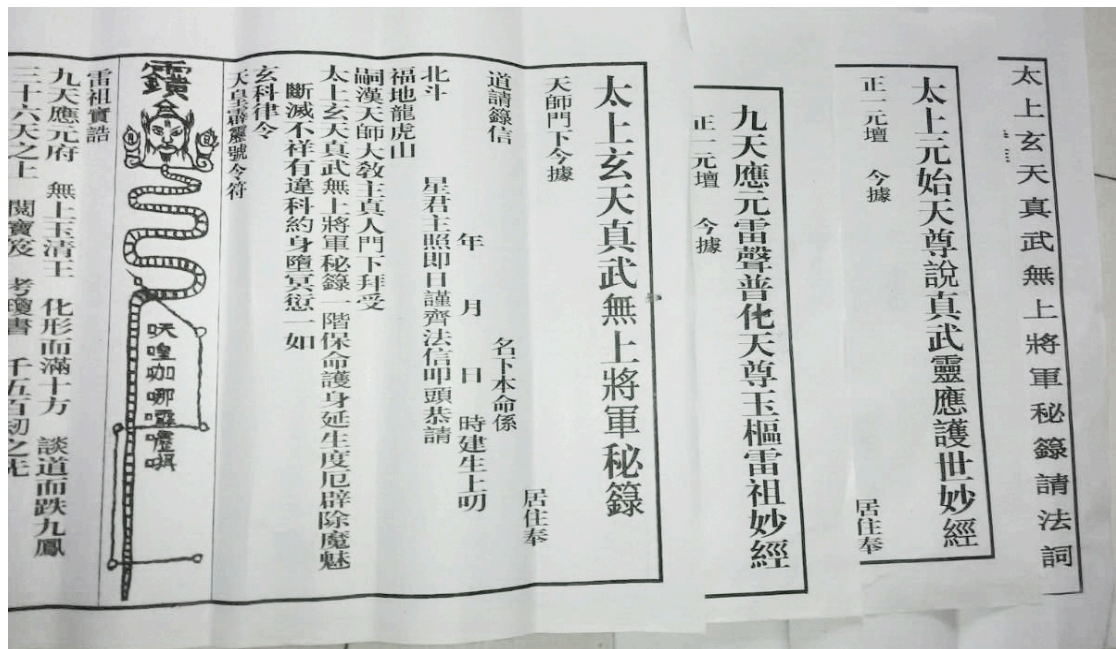 太上玄天真武無上將軍秘籙請法詞
太上元始天尊說真武靈應護世妙經
正一元壇 今據
居住奉
九天應元雷聲普化天尊玉樞雷祖妙經
正一元壇 今據
太上玄天真武無上將軍秘籙
天師門下今據
居住奉
道請籙信
名下本命係
年 月 日 時建生上叩
北斗 星君主照即日謹齊法信叩頭恭請
福地龍虎山
嗣漢天師大教主真人門下拜受
太上玄天真武無上將軍秘籙一階保命護身延生度厄辟除魔魅
斷滅不祥有違科約身墮冥愆一如
玄科律令
天皇辟靈號令符
雷祖寶誥
九天應元府 無上玉清王 化形而滿十方 談道而跌九鳳
三十六天之上 閱寶笈 考瓊書 千五百劫之先